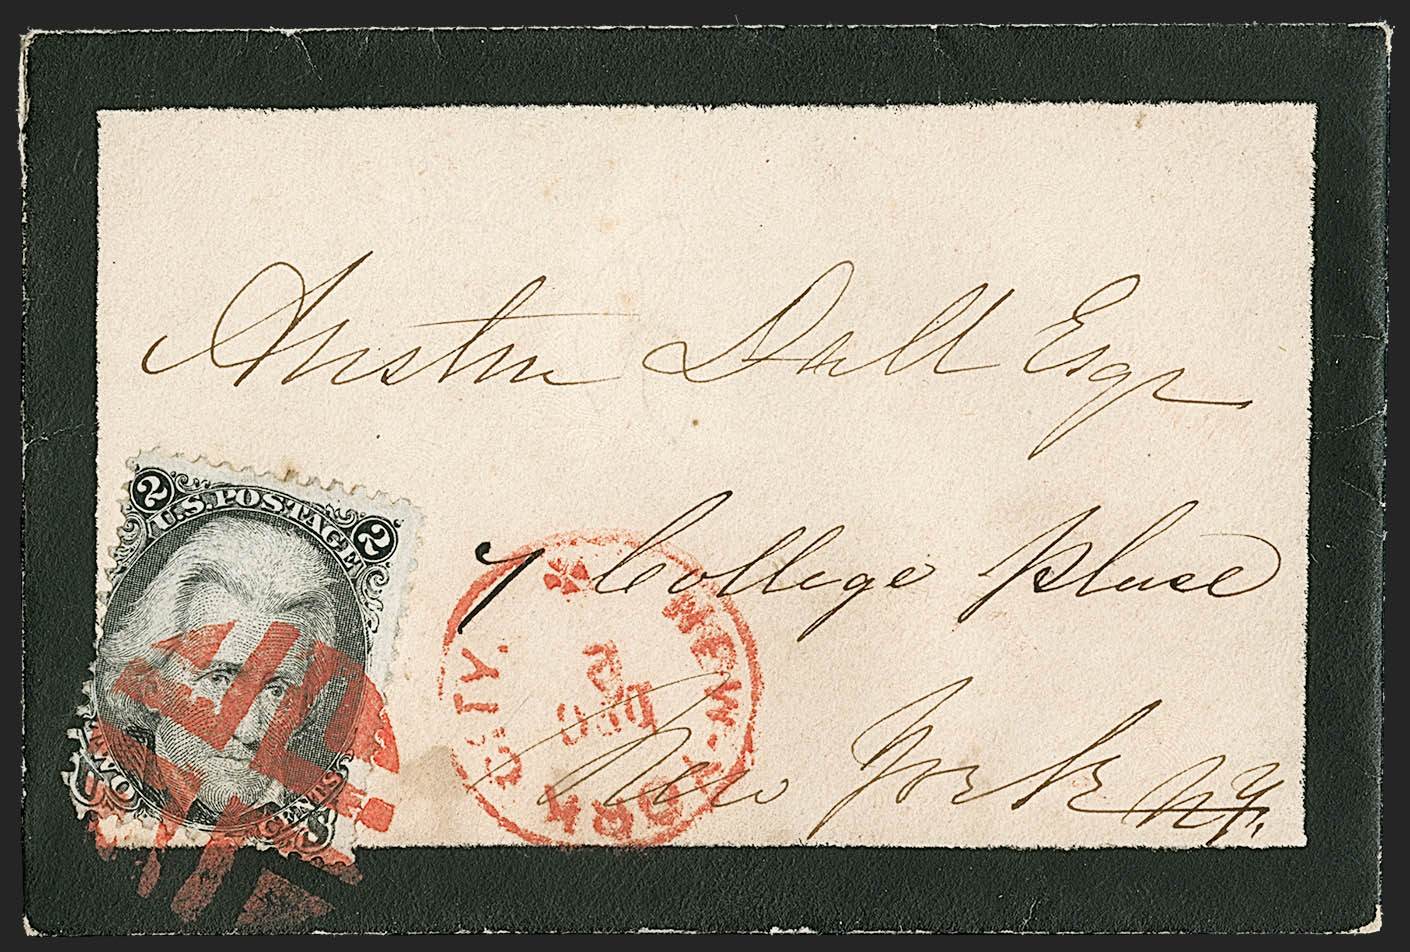 Austin Hall Esqr
7 College Place
New York N.Y.
2 U.S. POSTAGE 2
TWO CENTS
NEW-YORK CITY.
DEC